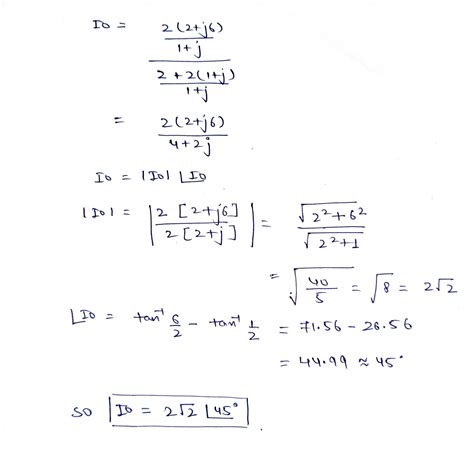 Io = 2(2+j6)
1+j
2+2(1+j)
1+j
= 2(2+j6)
4+2j
Io = |Io| ∠Io
|Io| = |2 [2+j6] / 2 [2+j]| = √2²+6² / √2²+1
= √40/5 = √8 = 2√2
∠Io = tan⁻¹ 6/2 - tan⁻¹ 1/2 = 71.56 - 26.56
= 44.99 ≈ 45°
so Io = 2√2 ∠45°